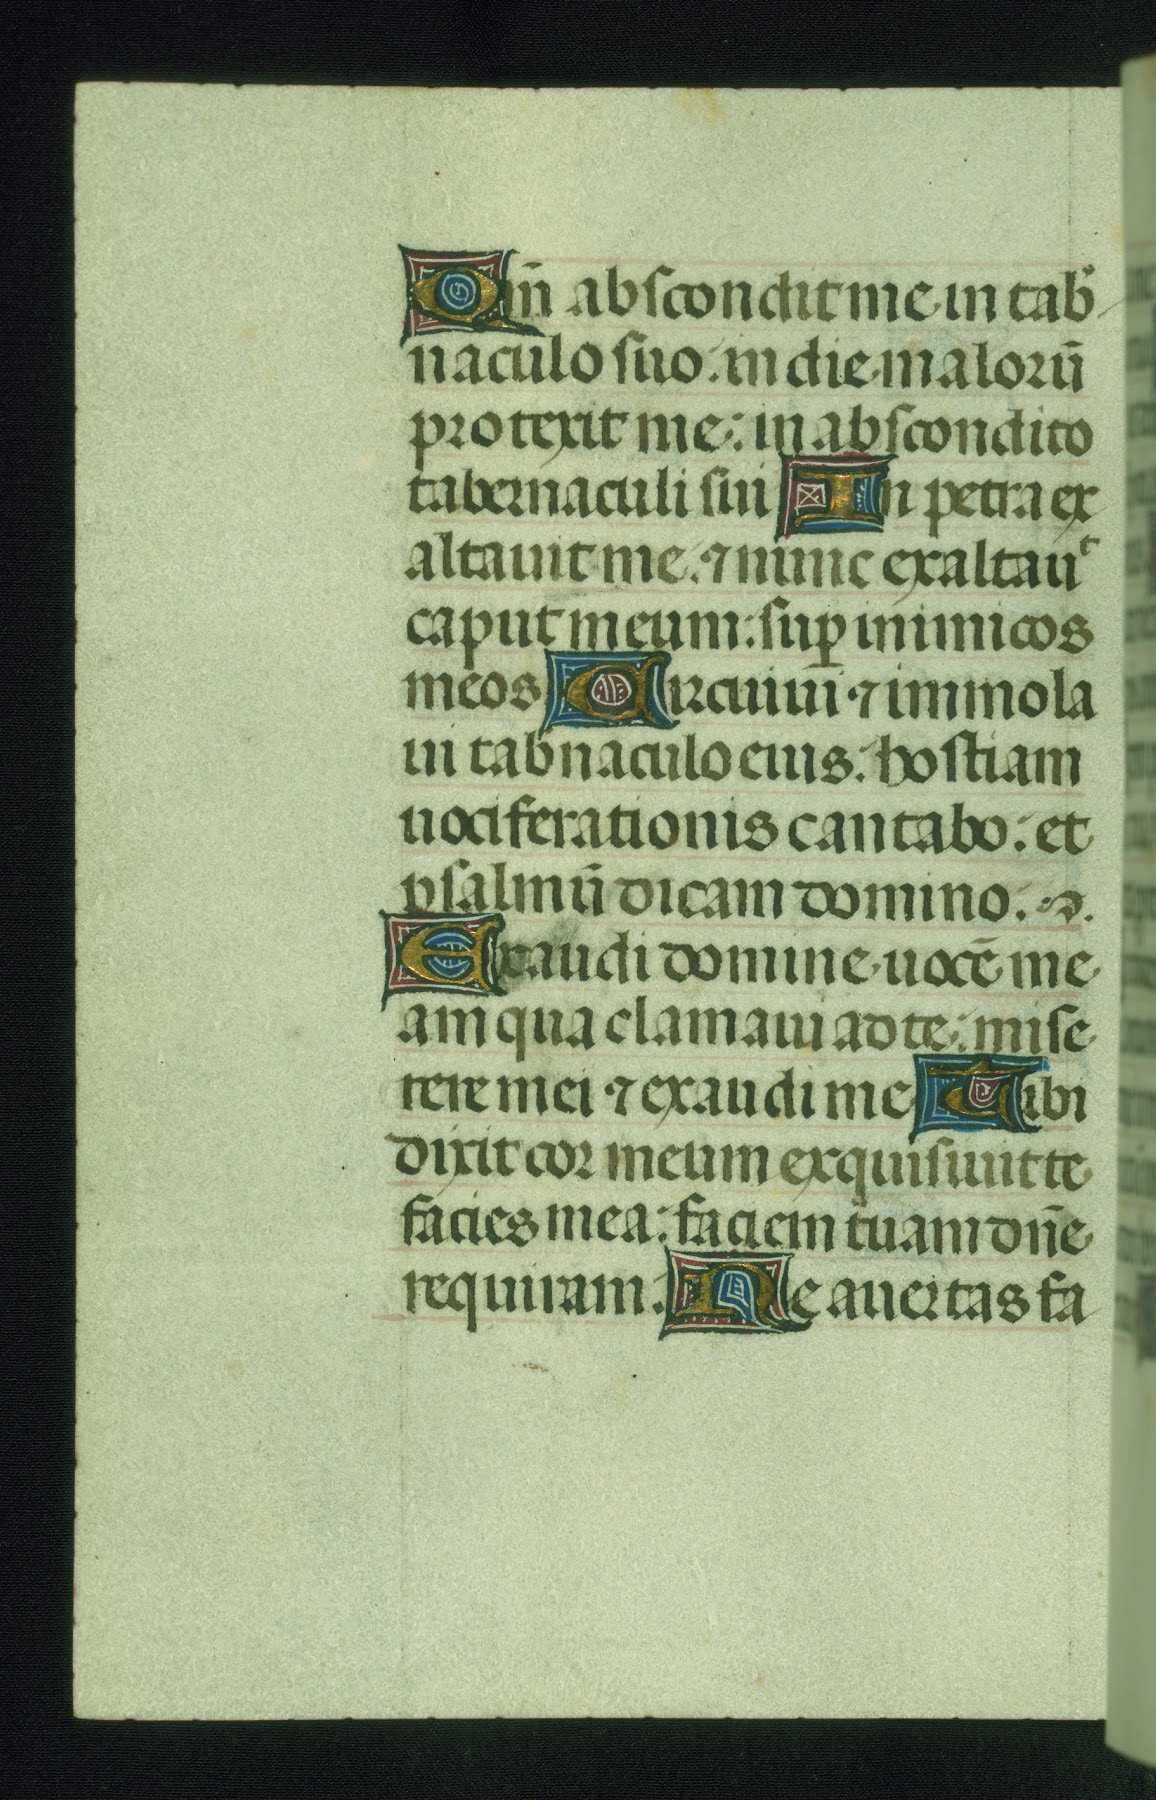 Qm̄ abscondit me in tab̉
naculo suo: in die malorū
protexit me: in abscondito
tabernaculi sui In petra ex
altauit me. ⁊ nunc exaltauᵗ
caput meum: suꝑ inimicos
meos Circuiui ⁊ immola
ui tab̉naculo eius: hostiam
uociferationis cantabo: et
psalmū dicam domino.
Exaudi domine uocē me
am qua clamaui ad te: mise
rere mei ⁊ exaudi me Tibi
dixit cor meum exquisiuit te
facies mea: faciem tuam dn̄e
requiram: Ne auertas fa